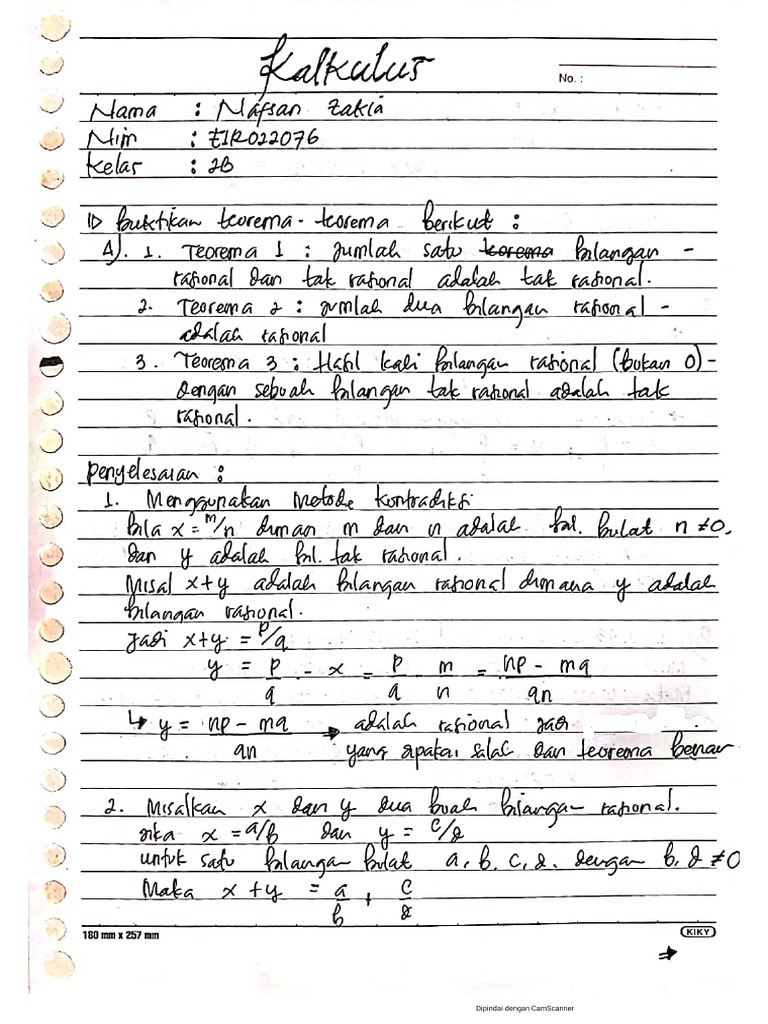 Kalkulus
No. :
Nama : Nafsan Zakia
Nim : E1R022076
Kelas : 2B
1) Buktikan teorema-teorema berikut :
A). 1. Teorema 1 : Jumlah satu teorema bilangan -
rasional dan tak rasional adalah tak rasional.
2. Teorema 2 : jumlah dua bilangan rasional -
adalah rasional
3. Teorema 3 : Hasil kali bilangan rasional (bukan 0) -
dengan sebuah bilangan tak rasional adalah tak
rasional.
Penyelesaian :
1. Menggunakan Metode kontradiksi
bila x = m/n diman m dan n adalah bil. bulat n ≠ 0.
dan y adalah bil. tak rasional.
Misal x+y adalah bilangan rasional dimana y adalah
bilangan rasional.
Jadi x+y = p/q
y = p/q - x = p/q - m/n = np - mq/qn
↳ y = np - mq/qn → adalah rasional jadi
yang dipakai salah dan teorema benar
2. Misalkan x dan y dua buah bilangan rasional.
Jika x = a/b dan y = c/d
untuk satu bilangan bulat a, b, c, d. dengan b, d ≠ 0
Maka x + y = a/b + c/d
180 mm x 257 mm
KIKY
⇒
Dipindai dengan CamScanner